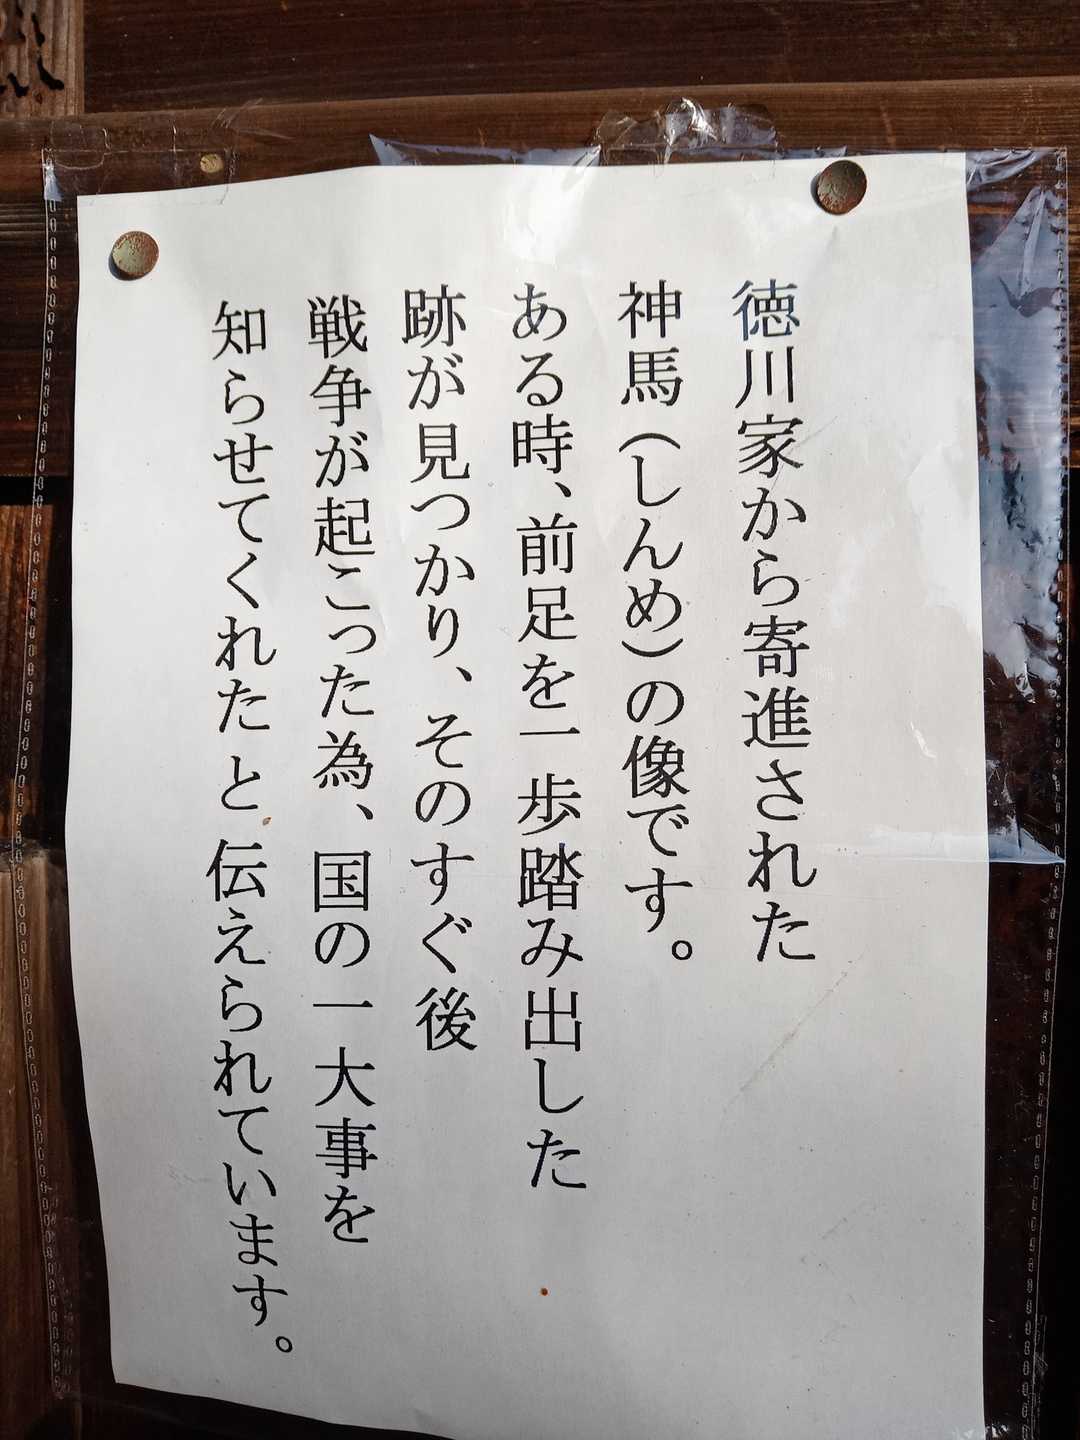 徳川家から寄進された
神馬(しんめ)の像です。
ある時、前足を一歩踏み出した
跡が見つかり、そのすぐ後
戦争が起こった為、国の一大事を
知らせてくれたと伝えられています。